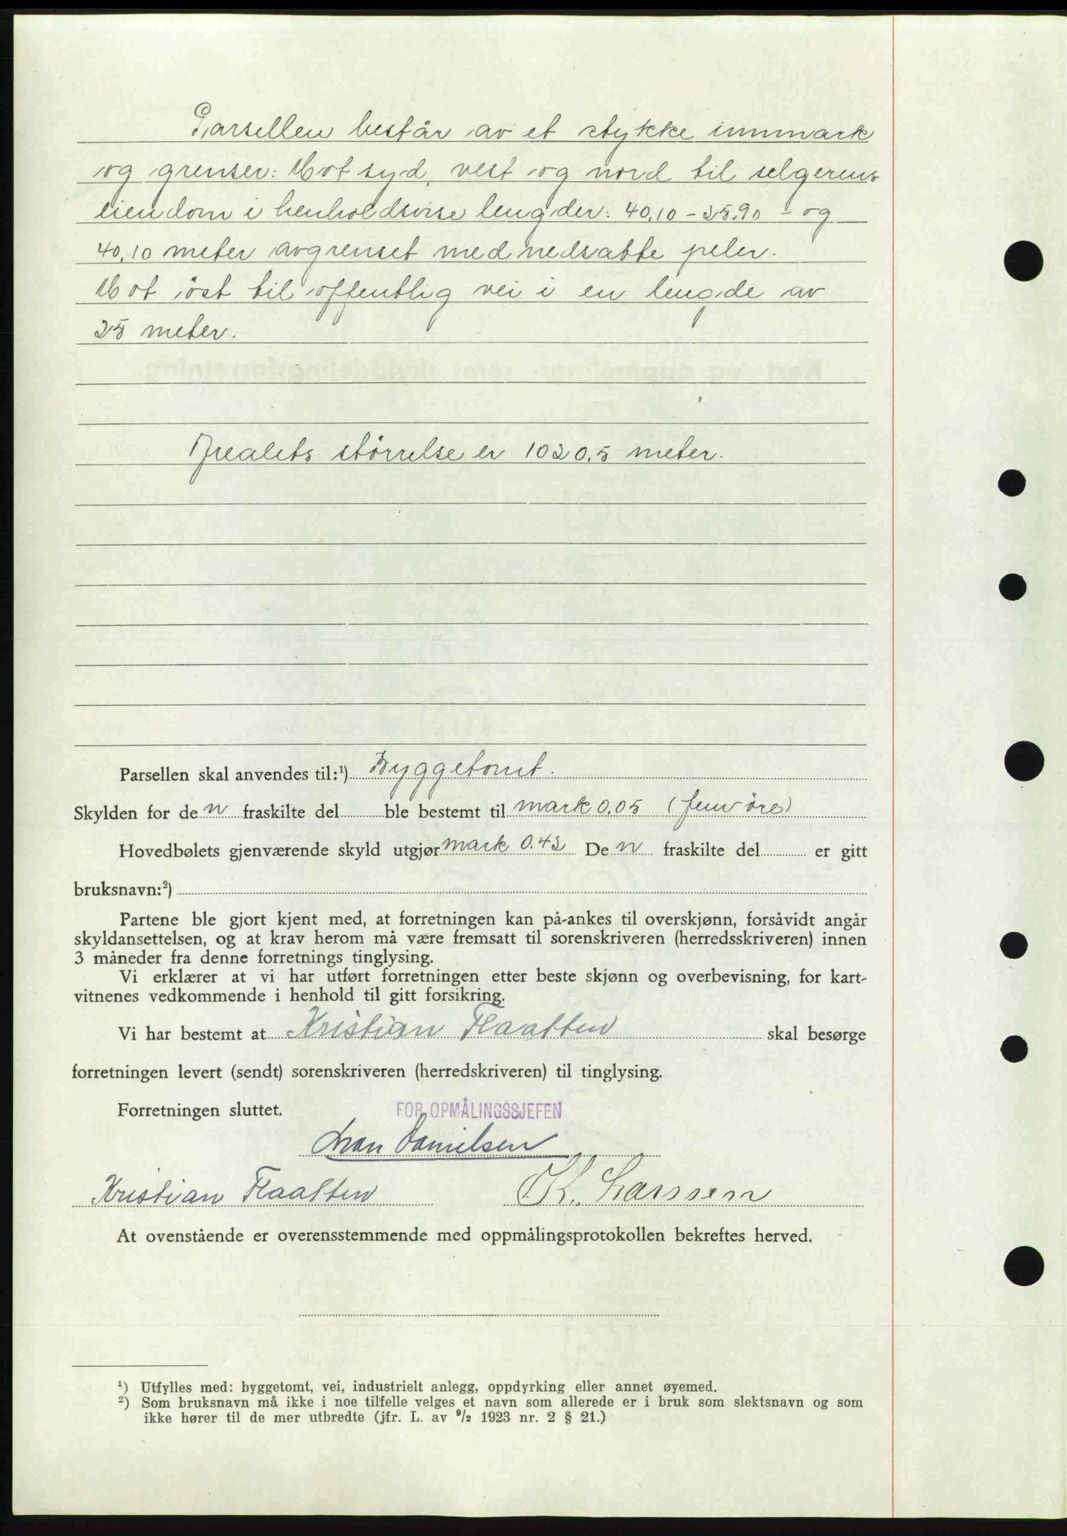 Parsellen består av et stykke innmark
og grenser: Mot syd, vest og nord til selgerens
eiendom i henholdsvise lengder: 40,10 - 25,90 - og
40,10 meter avgrenset med nedsatte peler.
Mot øst til offentlig vei i en lengde av
25 meter.
Arealets størrelse er 1020,5 meter.
Parsellen skal anvendes til:¹) Byggetomt.
Skylden for de n fraskilte del ble bestemt til mark 0.05 (fem øre)
Hovedbølets gjenværende skyld utgjør mark 0.42 De n fraskilte del er gitt
bruksnavn:²)
Partene ble gjort kjent med, at forretningen kan på-ankes til overskjønn, forsåvidt angår
skyldansettelsen, og at krav herom må være fremsatt til sorenskriveren (herredsskriveren) innen
3 måneder fra denne forretnings tinglysing.
Vi erklærer at vi har utført forretningen etter beste skjønn og overbevisning, for kart-
vitnenes vedkommende i henhold til gitt forsikring.
Vi har bestemt at Kristian Flaatten skal besørge
forretningen levert (sendt) sorenskriveren (herredskriveren) til tinglysing.
Forretningen sluttet.
FOR OPMÅLINGSSJEFEN
Danielsen
Kristian Flaatten K. Larssen
At ovenstående er overensstemmende med oppmålingsprotokollen bekreftes herved.
¹) Utfylles med: byggetomt, vei, industrielt anlegg, oppdyrking eller annet øyemed.
²) Som bruksnavn må ikke i noe tilfelle velges et navn som allerede er i bruk som slektsnavn og som
ikke hører til de mer utbredte (jfr. L. av ⁹/₂ 1923 nr. 2 § 21.)